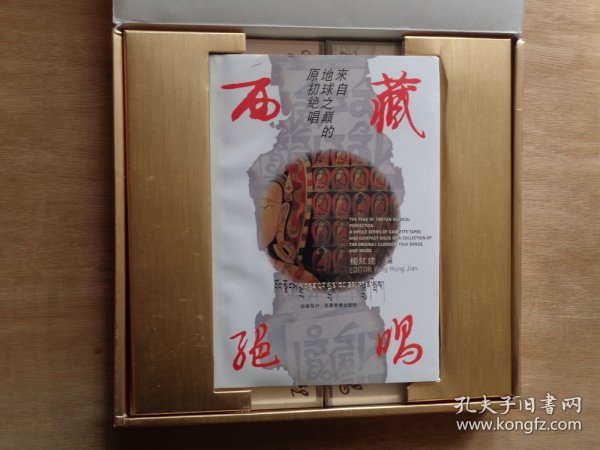 西藏
絕唱
來自
地球之巔的
原初絕唱
THE PEAK OF TIBETAN MUSICAL
PERFECTION
A WHOLE SERIES OF CASSETTE TAPES
AND COMPACT DISCS OF A COLLECTION OF
THE ORIGINAL CLASSICAL FOLK SONGS
AND MUSIC
EDITOR Yang Hong Jian
孔夫子旧书网
www.kongfz.com